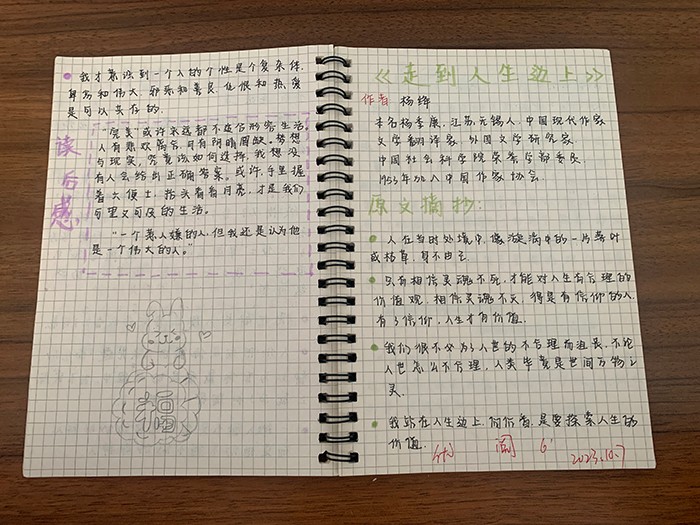 我才意识到一个人的个性是个复杂体.
卑劣和伟大,邪恶和善良,仇恨和热爱
是可以共存的.
读后感
"完美或许永远都不适合形容生活,
人有悲欢离合,月有阴晴圆缺。梦想
与现实,究竟该如何选择,我想没
有人会给出正确答案,或许,手里握
着六便士,抬头看看月亮,才是我们
可望又可及的生活。
"一个惹人嫌的人,但我还是认为他
是一个伟大的人。"
福
《走到人生边上》
作者 杨绛
本名杨季康,江苏无锡人,中国现代作家
文学翻译家,外国文学研究家
中国社会科学院荣誉学部委员
1953年加入中国作家协会.
原文摘抄:
人在当时处境中,像漩涡中的一片落叶
或枯草,身不由己.
只有相信灵魂不死,才能对人生有合理的
价值观,相信灵魂不灭,得是有信仰的人
有了信仰,人生才有价值.
我们很不必为了人世的不合理而沮丧,不论
人世怎么不合理,人类毕竟是世间万物之
灵.
我站在人生边上,向后看,是要探索人生的
价值.
优 阅 2023.10.7